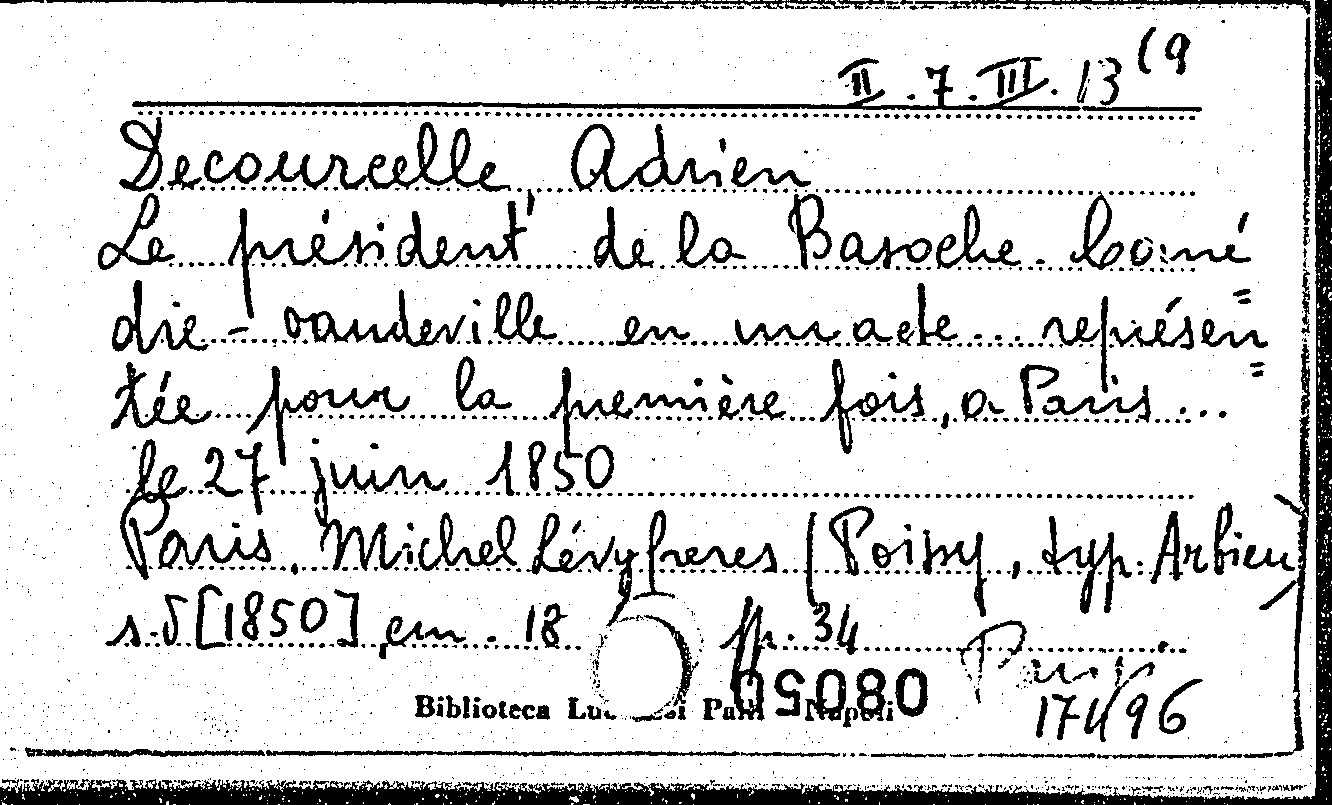 II.7.III.13(9
Decourcelle, Adrien
Le président de la Basoche. Comé
die-vaudeville en un acte... représen
tée pour la première fois, a Paris...
le 27 juin 1850
Paris, Michel Lévy freres (Poissy, typ. Arbieu)
s.d [1850], cm. 18 pp. 34
Biblioteca Luc si Palli Napoli
05080
96